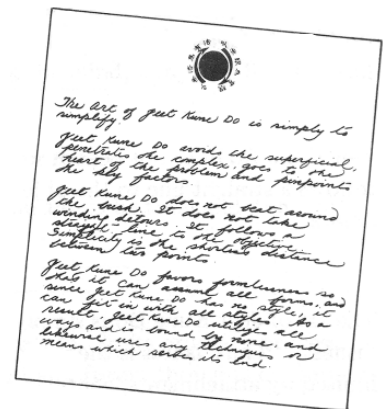 The art of Jeet Kune Do is simply to
simplify.
Jeet Kune Do avoids the superficial,
penetrates the complex, goes to the
heart of the problem and pinpoints
the key factors.
Jeet Kune Do does not beat around
the bush. It does not take
winding detours. It follows a
straight-line to the objective.
Simplicity is the shortest distance
between two points.
Jeet Kune Do favors formlessness so
that it can assume all forms, and
since Jeet Kune Do has no style, it
can fit-in with all styles. As a
result, Jeet Kune Do utilizes all
ways and is bound by none, and
likewise uses any techniques or
means which serves its end.